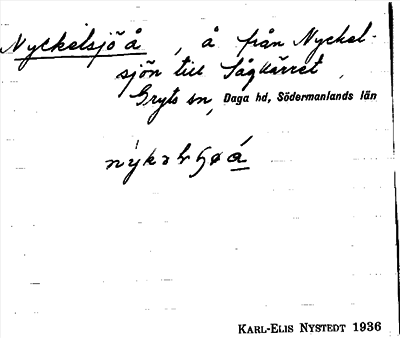 Nyckelsjö å, å från Nyckel-
sjön till Sågkärret,
Gryts sn, Daga hd, Södermanlands län
KARL-ELIS NYSTEDT 1936